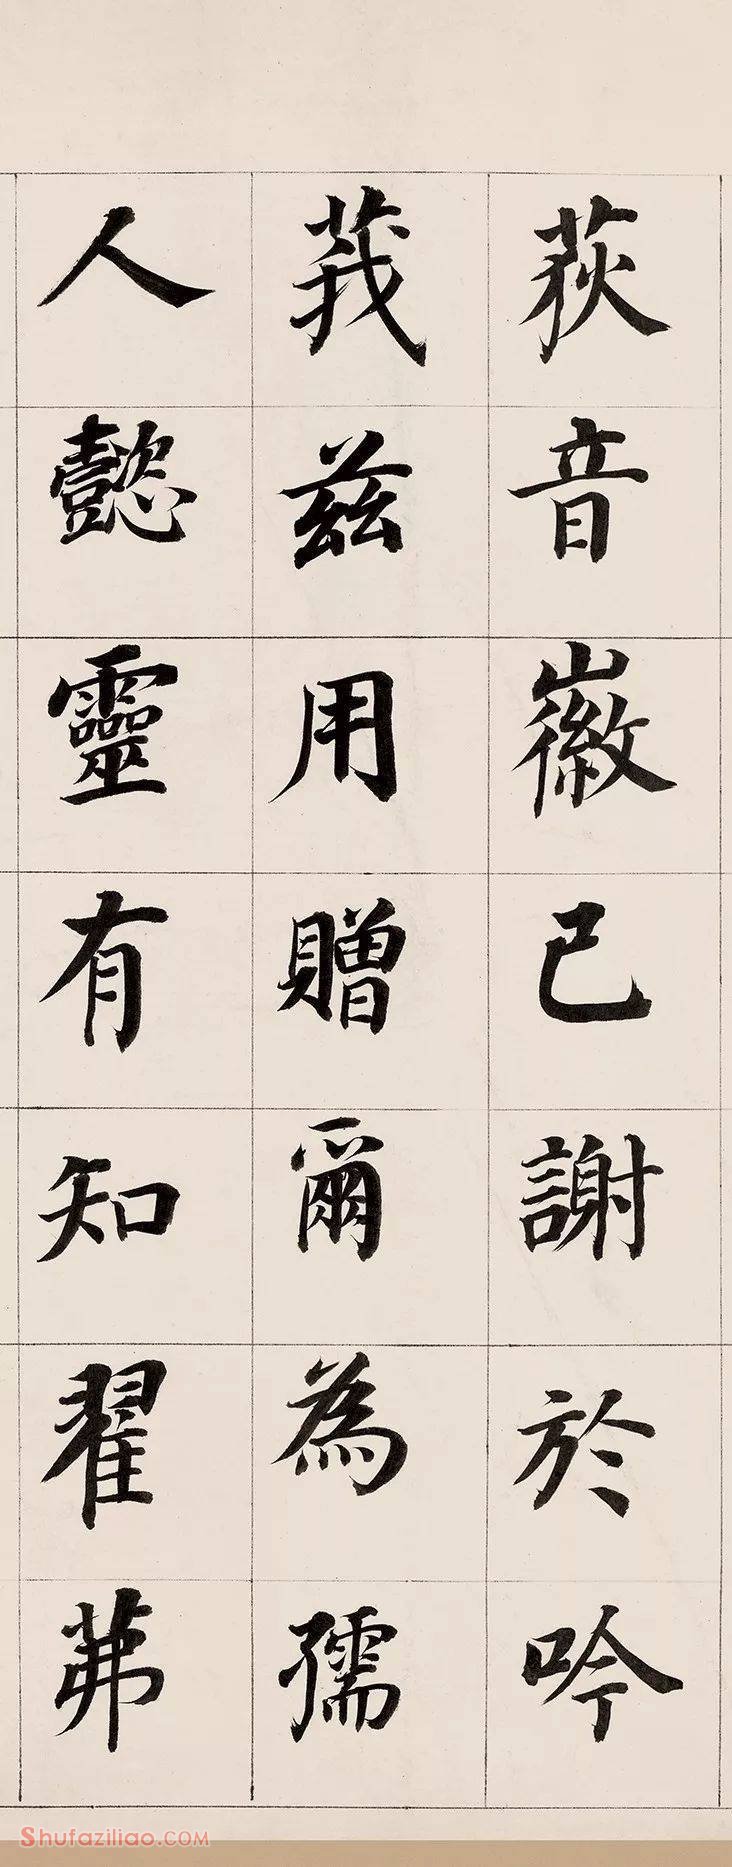 荻音徽已謝於吟
莪茲用贈爾為孺
人懿靈有知翟茀
Shufaziliao.COM